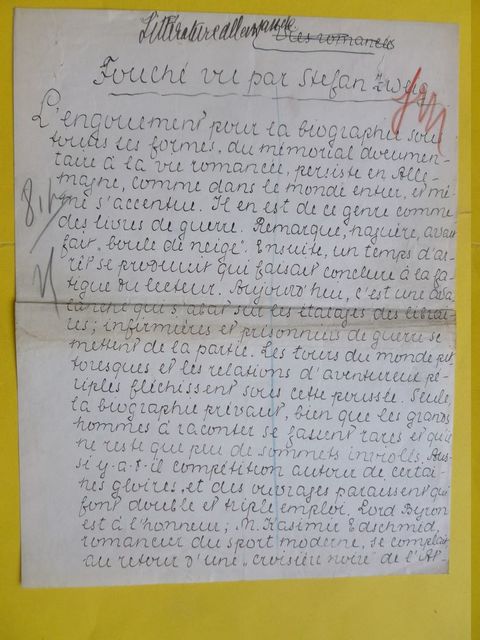 Littérature allemande
Vies romancées
Fouché vu par Stefan Zweig
L'engouement pour la biographie sous
toutes les formes, du mémorial documen-
taire à la vie romancée, persiste en Alle-
magne, comme dans le monde entier, et mê-
me s'accentue. Il en est de ce genre comme
des livres de guerre. Remarque, naguère, avait
fait "boule de neige". Ensuite, un temps d'ar-
rêt se produisit qui faisait conclure à la fa-
tigue du lecteur. Aujourd'hui, c'est une ava-
lanche qui s'abat sur les étalages des librai-
res; infirmières et prisonniers de guerre se
mettent de la partie. Les tours du monde pit-
toresques et les relations d'aventureux pé-
riples fléchissent sous cette poussée. Seule,
la biographie prévaut, bien que les grands
hommes à raconter se fassent rares et qu'il
ne reste que peu de sommets inviolés. Aus-
si y-a-t-il compétition autour de certai-
nes gloires, et des ouvrages paraissent qui
font double et triple emploi. Lord Byron
est à l'honneur; M. Kasimir Edschmid,
romancier du sport moderne, se complaît
au retour d'une "croisière noire" de l'Af-